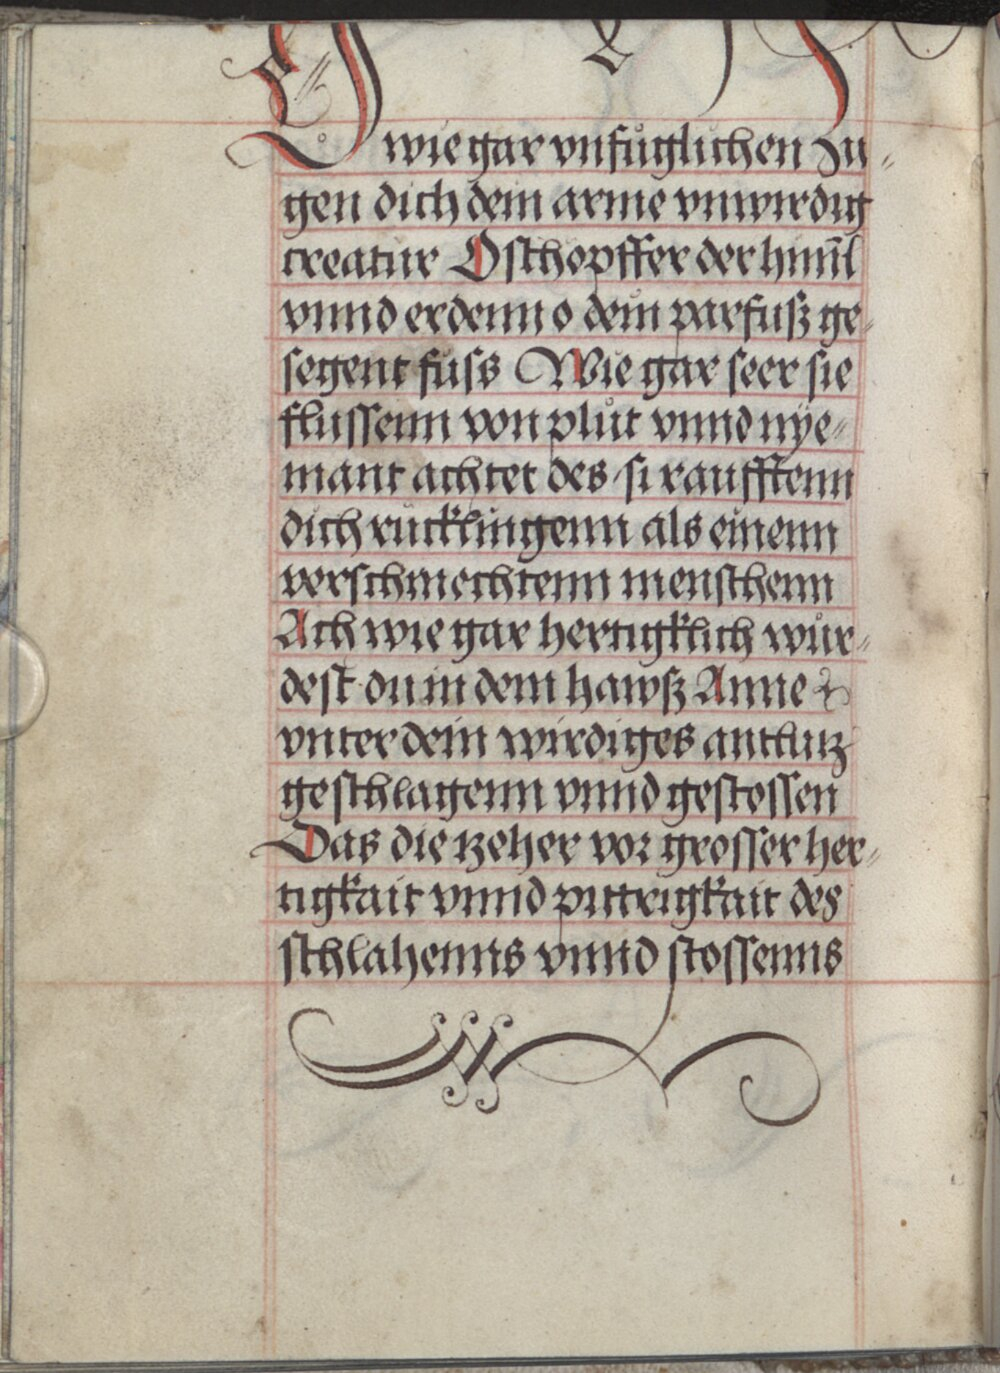 O wie gar vnfůglichen zu-
gen dich dem arme vnwirdig
creatur O schopffer der himl̄
vnnd erdenn o dein parfusz ge-
segent fuss Wie gar seer sie
flussenn von plůt vnnd nye-
mant achtet des · si raufftenn
dich rucklingenn als einenn
verschmechtenn menschenn
Ach wie gar hertigklich wůr-
dest du in dem hawsz Anne
vnter dein wirdiges antlutz
geschlagenn vnnd gestossen
Das die tzeher vor grosser her-
tigkait vnnd pittrigkait des
schlahenns vnnd stossenns